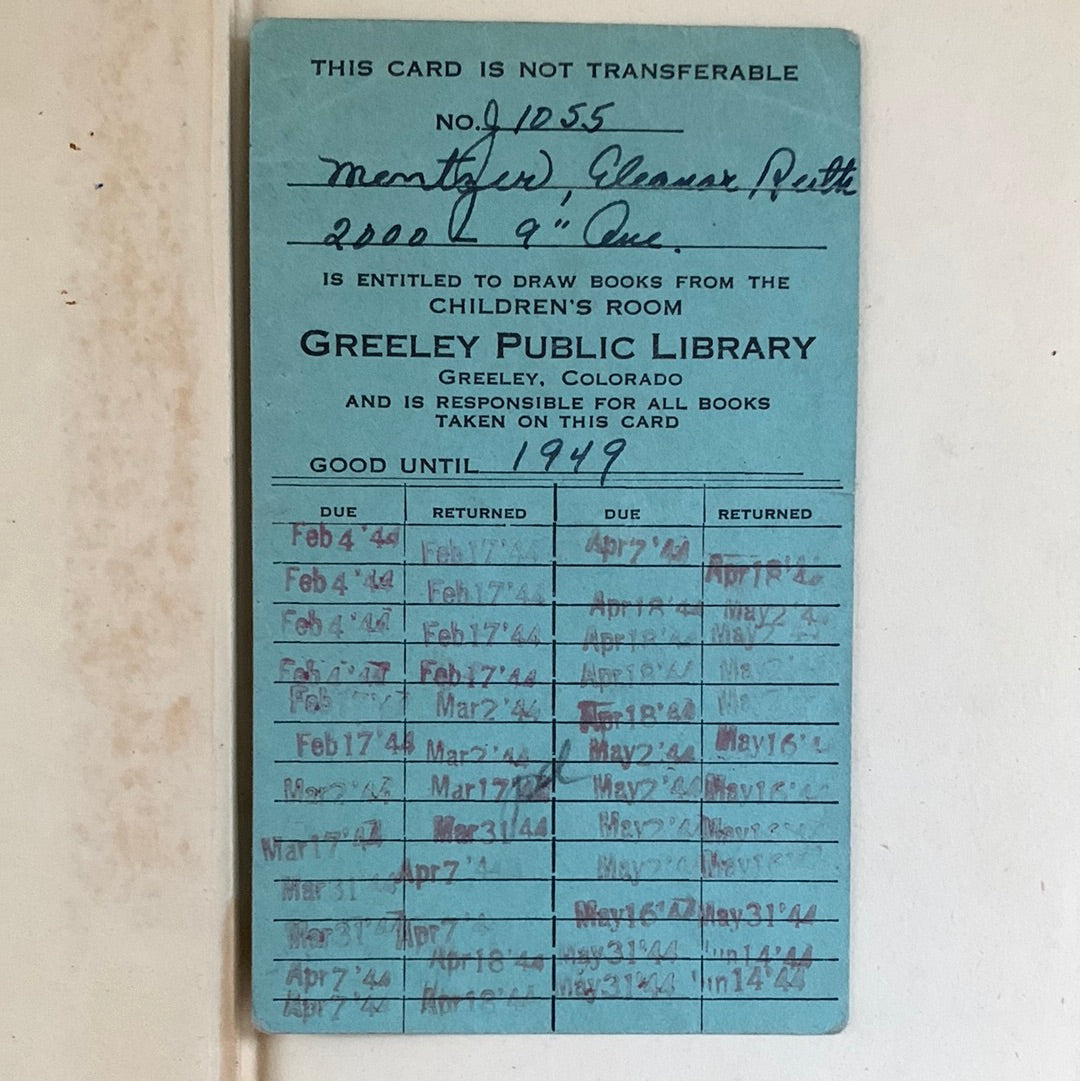 THIS CARD IS NOT TRANSFERABLE
NO. J 1055
Mentzer, Eleanor Ruth
2000 - 9" Ave.
IS ENTITLED TO DRAW BOOKS FROM THE
CHILDREN'S ROOM
GREELEY PUBLIC LIBRARY
GREELEY, COLORADO
AND IS RESPONSIBLE FOR ALL BOOKS
TAKEN ON THIS CARD
GOOD UNTIL 1949
DUE RETURNED DUE RETURNED
Feb 4 '44 Feb 17 '44 Apr 7 '44
Apr 18 '44
Feb 4 '44 Feb 17 '44 Apr 18 '44 May 2 '44
Feb 4 '44 Feb 17 '44 Apr 18 '44 May 2
Feb 4 '44 Feb 17 '44 Apr 18 '44 May 2
Feb Mar 2 '44 Apr 18 '44
Feb 17 '44 Mar 2 '44 May 2 '44 May 16 '
Mar 2 '44 Mar 17 '44 May 2 '44 May 16 '
Mar 17 '44 Mar 31 '44 May 2 '44 May 16
Mar 31 '44 Apr 7 '44 May 2 '4 May 16
Mar 31 '44 Apr 7 '4 May 16 '44 May 31 '44
Apr 7 '44 Apr 18 '44 May 31 '44 un 14 '44
Apr 7 '44 Apr 18 '44 May 31 '44 un 14 '44